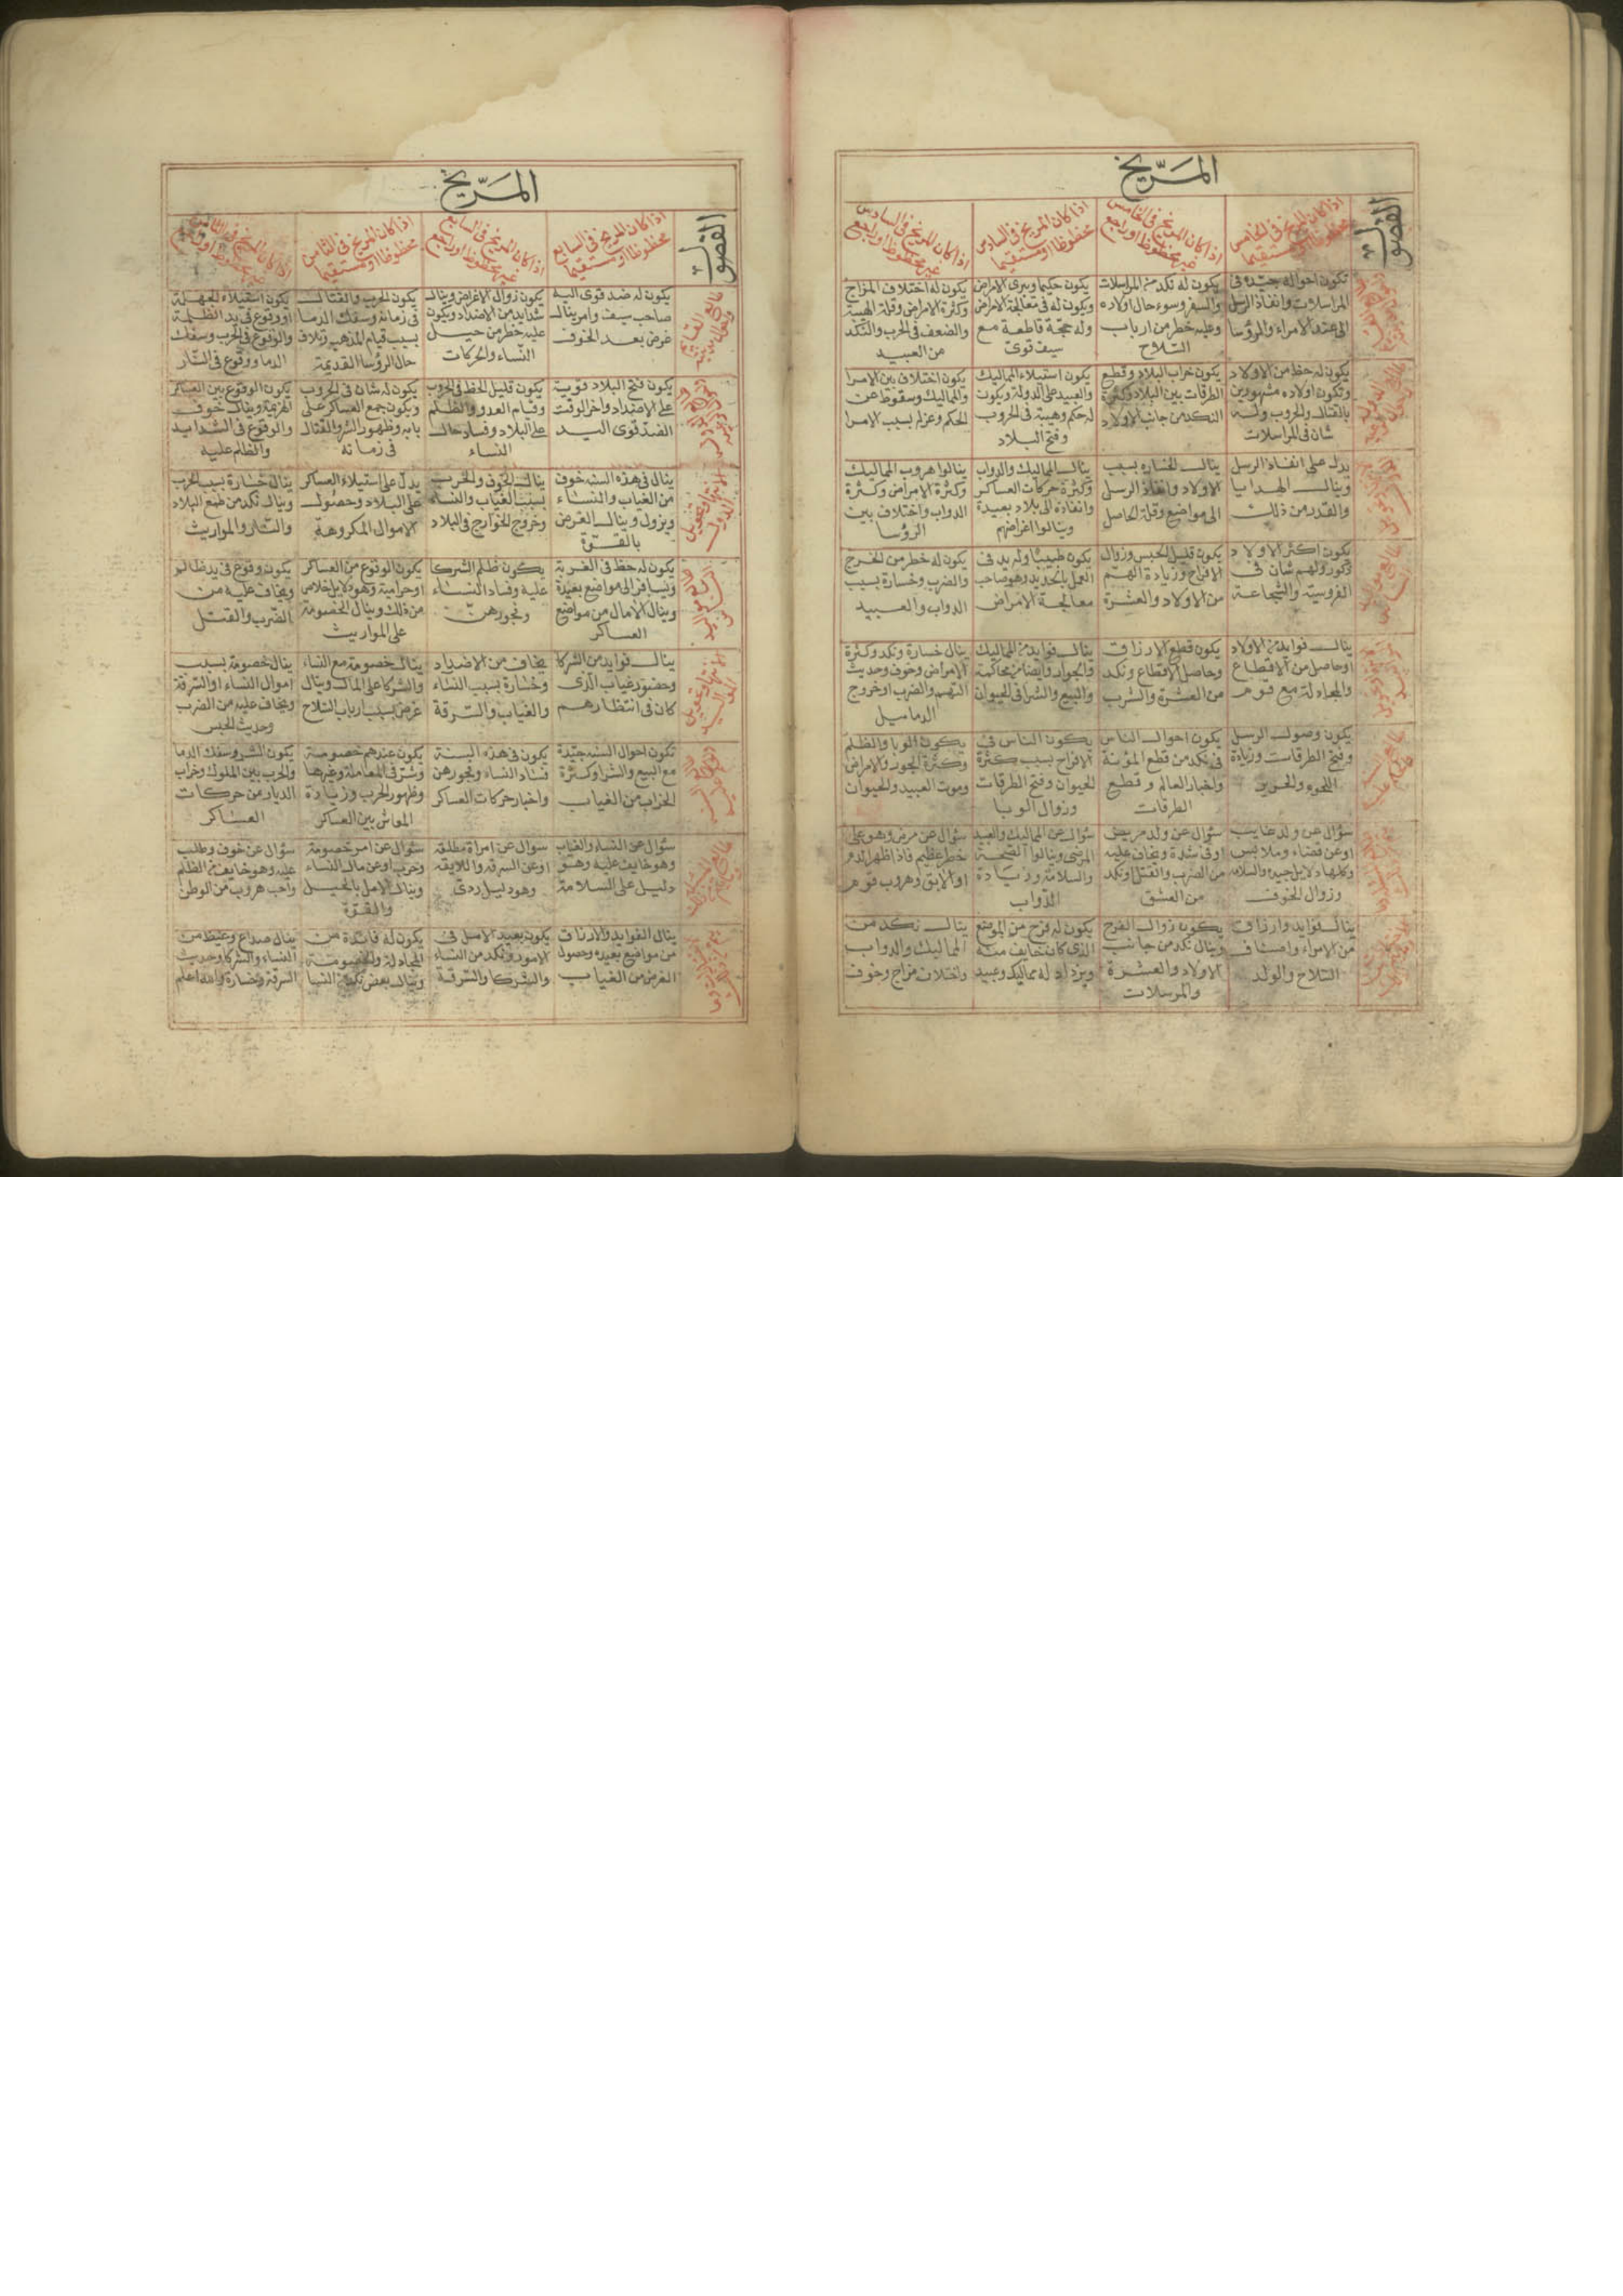 المريخ
الفصول
اذا كان المريخ فى الخامس
محظوظا او مستقيما
اذا كان المريخ فى الخامس
غير محظوظ او راجع
اذا كان المريخ فى السادس
محظوظا او مستقيما
اذا كان المريخ فى السادس
غير محظوظ او راجع
تكون احواله جيده فى
المراسلات وانفاذ الرسل
الى عند الامراء والروسا
يكون له نكد من المراسلات
والسفر وسوء حال اولاده
وعليه خطر من ارباب
السلاح
يكون حكيما ويبرى الامراض
ويكون له فى معالجة الامراض
وله حجة قاطعة مع
سيف قوى
يكون له اختلاف المزاج
وكثرة الامراض وقلة الهيبة
والضعف فى الحرب والنكد
من العبيد
يكون له حظ من الاولاد
وتكون اولاده مشهورين
بالقتال والحروب وله
شان فى المراسلات
يكون خراب البلاد وقطع
الطرقات بين البلاد وكثرة
النكد من جانب الاولاد
يكون استيلاء المماليك
والعبيد على الدولة ويكون
له حكم وهيبة فى الحروب
وفتح البلاد
يكون اختلاف بين الامرا
والمماليك وسقوط عن
الحكم وعزله بسبب الامرا
يدل على انفاذ الرسل
وينال الهدايا
والقدر من ذلك
ينال الخساره بسبب
الاولاد وانفاذ الرسل
الى مواضع وقلة الحاصل
ينال المماليك والدواب
وكثرة حركات العساكر
وانفاذه الى بلاد بعيدة
وينالوا اغراضهم
ينالوا هروب المماليك
وكثرة الامراض وكثرة
الدواب واختلاف بين
الروسا
يكون اكثر الاولاد
ذكور ولهم شان فى
الفروسية والشجاعة
يكون قليل الحبس وزوال
الافراح وزيادة الهم
من الاولاد والعشرة
يكون طبيبا وله يد فى
العمل بالحديد وهو صاحب
معالجة الامراض
يكون له خطر من الخرج
والضرب وخسارة بسبب
الدواب والعبيد
ينال فوايد من الاولاد
او حاصل من الاقطاع
والمجادلة مع قوم
يكون قطع الارزاق
وحاصل الاقطاع ونكد
من العشرة والشرب
ينال فوايد من المماليك
والجوار وايضا من محاكمة
والبيع والشرا فى الحيوان
ينال خسارة ونكد وكثرة
الامراض وخوف وحديث
التهم والضرب او خروج
الدماميل
يكون وصول الرسل
وفتح الطرقات وزيادة
اللحوم والحرير
يكون احوال الناس
فى نكد من قطع المؤنة
واخبار العالم وقطع
الطرقات
يكون الناس فى
الافراح بسبب كثرة
الحيوان وفتح الطرقات
وزوال الوبا
يكون الوبا والظلم
وكثرة الجور والامراض
وموت العبيد والحيوان
سؤال عن ولد غايب
او عن قضاء وملابس
وكلها دلايل جيده والسلامه
وزوال الخوف
سؤال عن ولد مريض
او فى شدة ويخاف عليه
من الضرب والقتل او نكد
من العشق
سؤال عن المماليك والعبيد
المرضى وينالوا الصحة
والسلامة وزيادة
الدواب
سؤال عن مرض وهو على
خطر عظيم فاذا ظهر الدم
او الابق وهروب قوم
ينال فوايد وارزاق
من الامراء واصناف
السلاح والولد
يكون زوال الفرح
وينال نكد من جانب
الاولاد والعشرة
والمرسلات
يكون له فرح من الموضع
الذى كان خايف منه
ويزداد له مماليك وعبيد
ينال نكد من
المماليك والدواب
واختلاف مزاج وخوف
المريخ
الفصول
اذا كان المريخ فى السابع
محظوظا او مستقيما
اذا كان المريخ فى السابع
غير محظوظ او راجع
اذا كان المريخ فى الثامن
محظوظا او مستقيما
يكون له ضد قوى اليد
صاحب سيف وامر ينال
غرض بعد الخوف
يكون زوال الاغراض وينال
شدايد من الاضداد ويكون
عليه خطر من حيل
النساء والحركات
يكون الحرب والقتال
فى زمانه وسفك الدما
بسبب قيام المذهب وتلاف
حال الروسا القديمة
يكون استيلاء الجهلة
او وقوع فى يد الظلمة
والوقوع فى الحرب وسفك
الدما ووقوع فى النار
يكون فتح البلاد قوية
على الاضداد واخر الوقت
الضد قوى اليد
يكون قليل الحظ فى الحروب
وقيام العدو والظلم
على البلاد وفساد حال
النساء
يكون له شان فى الحروب
ويكون جمع العساكر على
بابه وظهور الشر والقتال
فى زمانه
يكون الوقوع بين العساكر
الهزيمة وينال خوف
والوقوع فى الشدايد
والظلم عليه
ينال فى هذه السنه خوف
من الغياب والنساء
ويزول وينال الغرض
بالقوة
ينال الخوف والحرب
بسبب الغياب والنساء
وخروج الخوارج فى البلاد
يدل على استيلاء العساكر
على البلاد وحصول
الاموال المكروهة
ينال خسارة بسبب الحرب
وينال نكد من طمع البلاد
والنار والمواريث
يكون له حظ فى الغربة
ويسافر الى مواضع بعيدة
وينال الامال من مواضع
العساكر
يكون ظلم الشركا
عليه وفساد النساء
وفجورهن
يكون الوقوع من العساكر
او حرامية وهو دلايل خلاص
من ذلك وينال الخصومة
على المواريث
يكون وقوع فى يد ظالم
ويخاف عليه من
الضرب والقتل
ينال فوايد من الشركا
وحضور غياب الذى
كان فى انتظارهم
يخاف من الاضداد
وخسارة بسبب النساء
والغياب والسرقة
ينال خصومة مع النساء
والشركا على المال وينال
غرض بسبب ارباب السلاح
ينال خصومة بسبب
اموال النساء او السرقة
ويخاف عليه من الضرب
وحديث الحبس
تكون احوال السنه جيدة
مع البيع والشرا وكثرة
الخراب من الغياب
يكون فى هذه السنة
فساد النساء وفجورهن
واخبار حركات العساكر
يكون عندهم خصومة
وشر فى المعاملة وغيرها
وظهور الحرب وزيادة
المعاش بين العساكر
يكون الشر وسفك الدما
والحرب بين الملوك وخراب
الديار من حركات
العساكر
سؤال عن النساء والغياب
وهو خايف عليه وهو
دليل على السلامة
سؤال عن امراة مطلقة
او عن السرقه واللايقه
وهو دليل ردى
سؤال عن امر خصومة
وحرب او عن مال النساء
وينال الامل بالحيل
والقوة
سؤال عن خوف وطلب
عليه وهو خايف من الظلم
واحب هروب من الوطن
ينال الفوايد والارزاق
من مواضع بعيده وحصول
الغرض من الغياب
يكون بعيد الامل فى
الامور ونكد من النساء
والشركا والسرقة
يكون له فائدة من
المجادلة والخصومة
وينال بعض نكد من النسا
ينال صداع وغيظ من
النساء والشركا وحديث
السرقه وخسارة والله اعلم